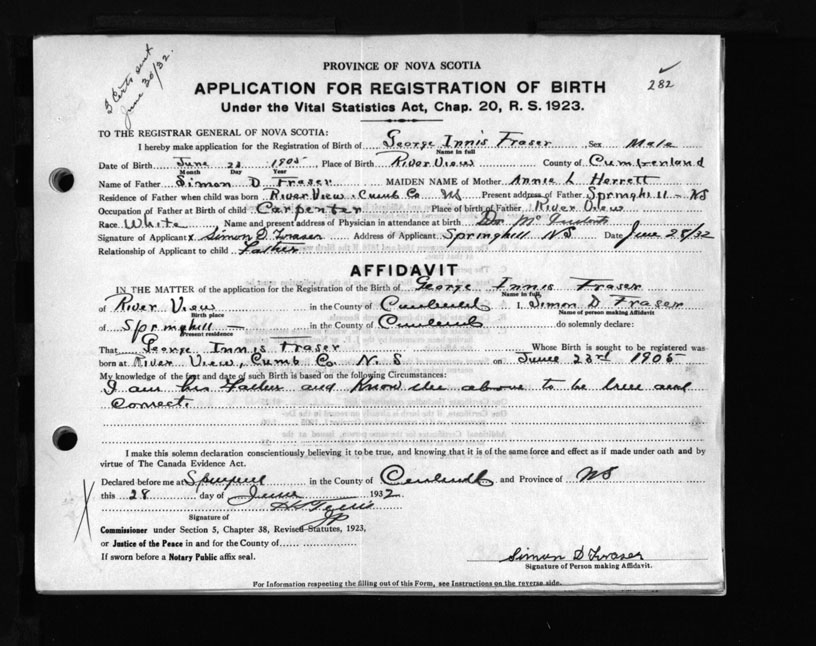 3 Certs sent
June 30/32.
282
PROVINCE OF NOVA SCOTIA
APPLICATION FOR REGISTRATION OF BIRTH
Under the Vital Statistics Act, Chap. 20, R. S. 1923.
TO THE REGISTRAR GENERAL OF NOVA SCOTIA:
I hereby make application for the Registration of Birth of George Innis Fraser Sex Male
Name in full
Date of Birth June 23 1905 Place of Birth River View County of Cumberland
Month Day Year
Name of Father Simon D Fraser MAIDEN NAME of Mother Annie L Herrett
Residence of Father when child was born River View Cumb Co NS Present address of Father Springhill - NS
Occupation of Father at Birth of child Carpenter Place of birth of Father River View
Race White Name and present address of Physician in attendance at birth Dr Mc
Signature of Applicant x Simon D Fraser Address of Applicant Springhill NS Date June 28/32
Relationship of Applicant to child Father
AFFIDAVIT
IN THE MATTER of the application for the Registration of the Birth of George Innis Fraser
Name in full
of River View in the County of Cumberland I, Simon D Fraser
Birth place Name of person making Affidavit
of Springhill in the County of Cumberland do solemnly declare:
Present residence
That George Innis Fraser Whose Birth is sought to be registered was
born at River View, Cumb Co. N. S on June 23rd 1905
My knowledge of the fact and date of such Birth is based on the following Circumstances:
I am his Father and Know the above to be true and
Correct.
I make this solemn declaration conscientiously believing it to be true, and knowing that it is of the same force and effect as if made under oath and by
virtue of The Canada Evidence Act.
Declared before me at Springhill in the County of Cumberland and Province of NS
this 28 day of June 1932
JP
Signature of
Commissioner under Section 5, Chapter 38, Revised Statutes, 1923,
or Justice of the Peace in and for the County of
If sworn before a Notary Public affix seal.
Simon D Fraser
Signature of Person making Affidavit.
For Information respecting the filling out of this Form, see Instructions on the reverse side.